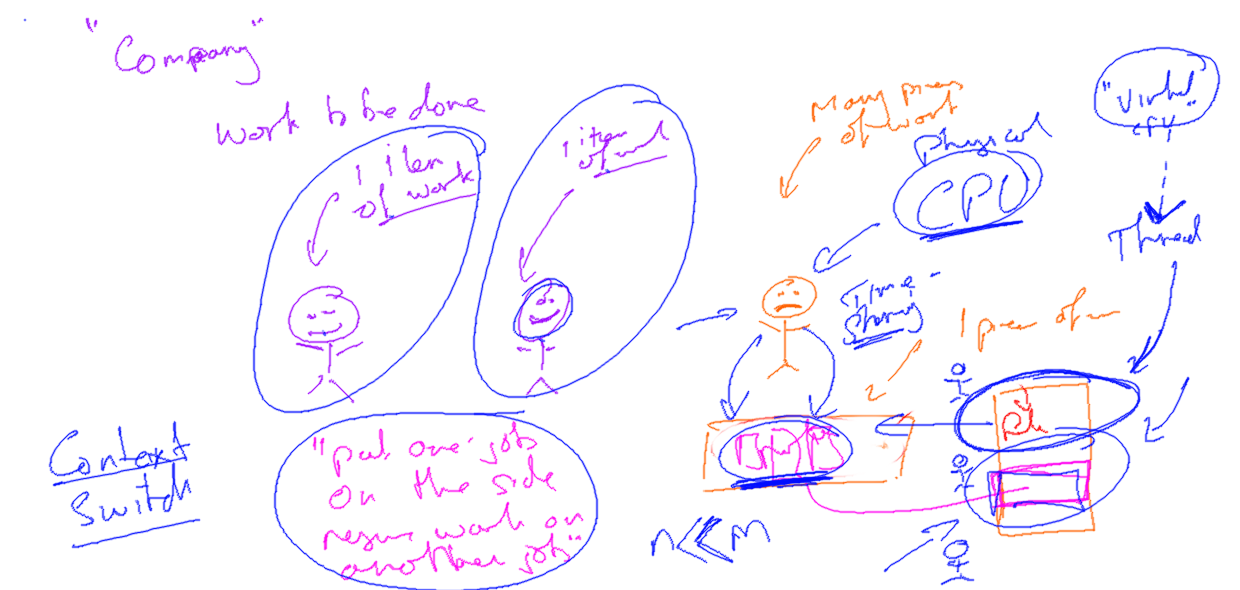 "Company"
Work to be done
1 item
of work
1 item
of work
Many pieces
of work
Physical
CPU
"Virtual
CPU"
Thread
Time-
Sharing
1 piece of
Context
Switch
"put one job
on the side
resume work on
another job"
n<<m